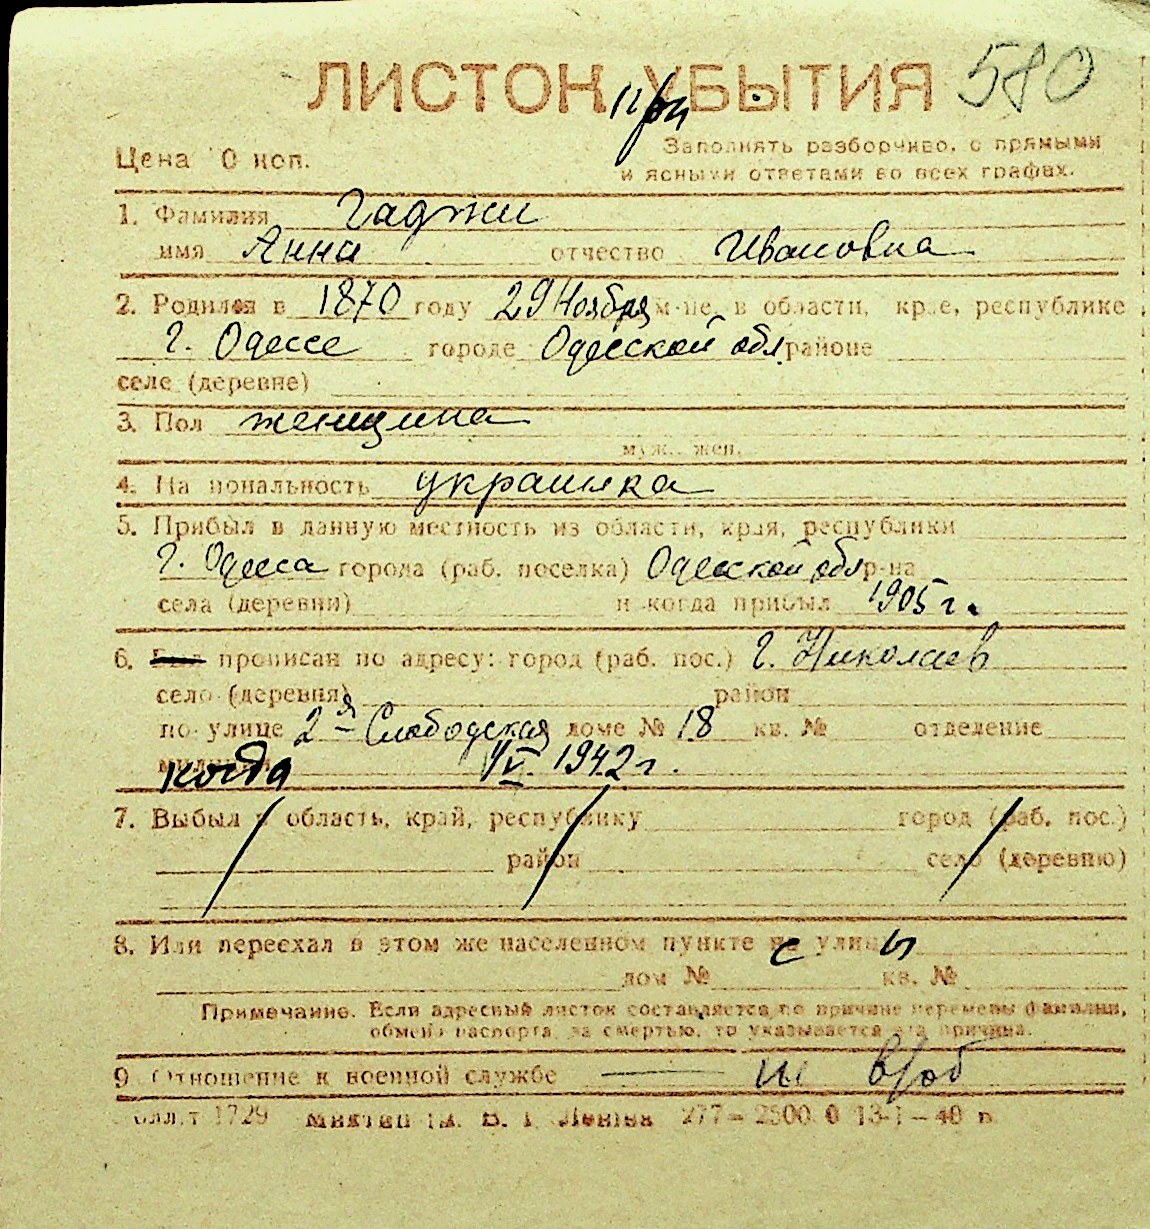 ЛИСТОК УБЫТИЯ 580
при
Цена 0 коп. Заполнять разборчиво, с прямыми
и ясными ответами во всех графах.
1. Фамилия Гаджи
имя Анна отчество Ивановна
2. Родился в 1870 году 29 Ноября м-це, в области, крае, республике
г. Одессе городе Одесской обл районе
селе (деревне)
3. Пол женщина
муж., жен.
4. Национальность украинка
5. Прибыл в данную местность из области, края, республики
г. Одесса города (раб. поселка) Одесской обл р-на
села (деревни) и когда прибыл 1905 г.
6. Был прописан по адресу: город (раб. пос.) г. Николаев
село (деревня) район
по улице 2я Слободская доме № 18 кв. № отделение
милиции когда 1/V. 1942 г.
7. Выбыл в область, край, республику город (раб. пос.)
район село (деревню)
8. Или переехал в этом же населенном пункте с улицы
дом № кв. №
Примечание. Если адресный листок составляется по причине перемены фамилии,
обмена паспорта, за смертью, то указывается эта причина.
9. Отношение к военной службе — в/об
1729 Ленина 277 – 2500.0 13-1 – 40 в